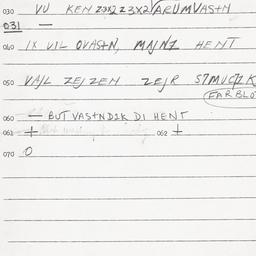 030 VU KEN 23X2 23X2 VARUMVASTN
031 —
040 IX VIL OVASTN, MAJNZ HENT
050 VAJL ZEJZEN ZEJR
060 — BUT VASTNDIK DI HENT
061 + 062 +
070 O